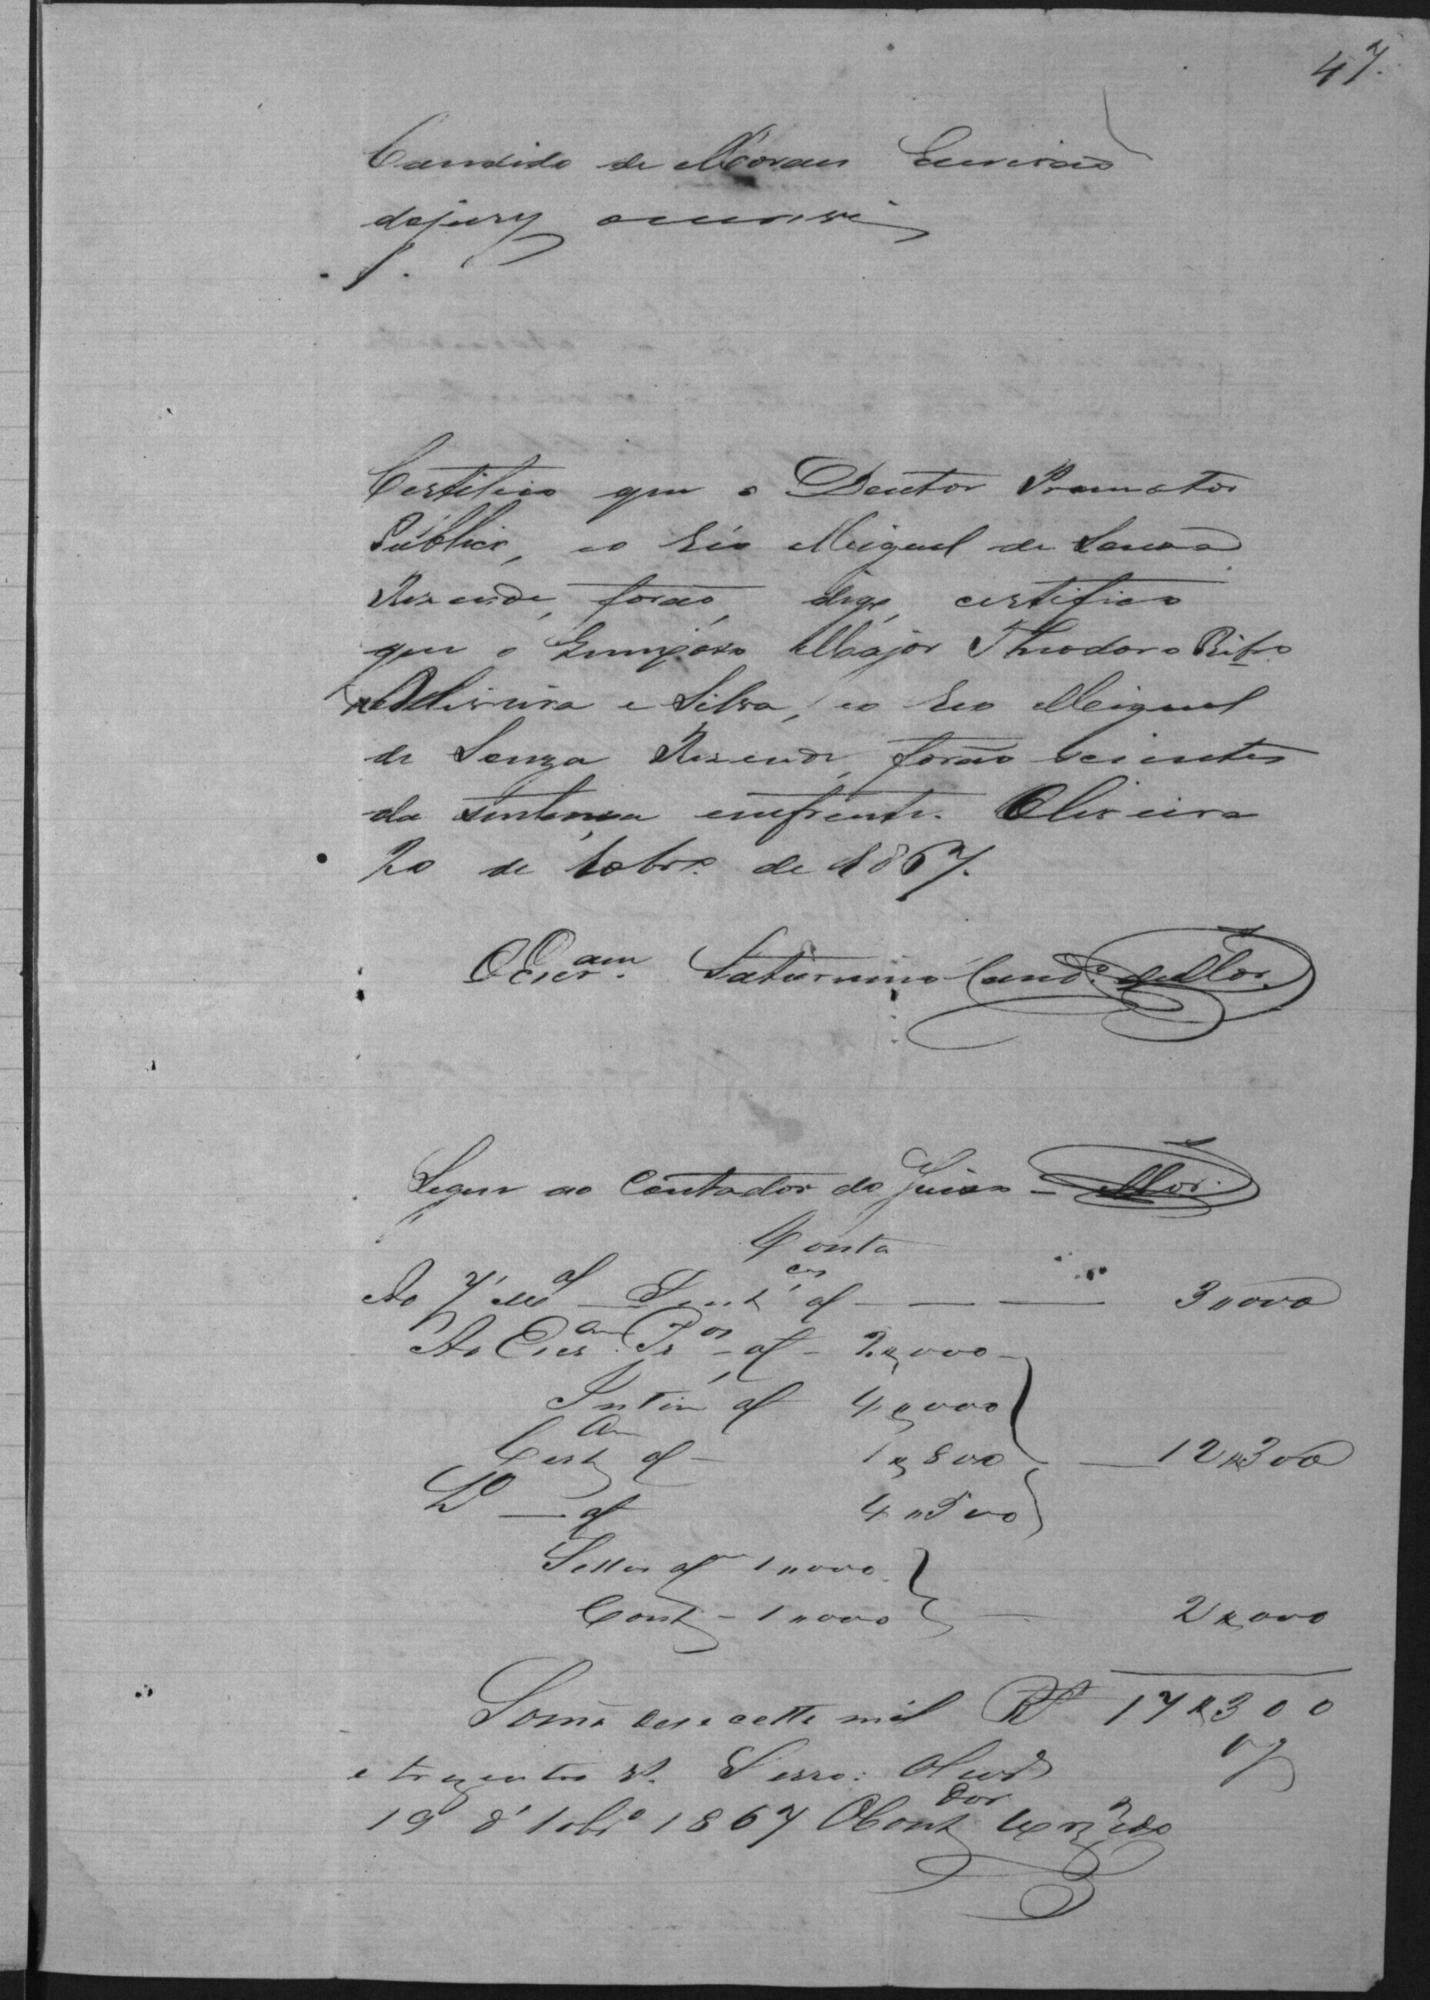 47.
Candido de Moraes Escrivaõ
do jury o escrevi
Certifico que o Doutor Promotor
Publico, eo Réo Miguel de Souza
Rezende, foraõ, digo, certifico
que o Major Theodoro Ribro
de Oliveira e Silva, eo Reo Miguel
de Souza Rezende, foraõ scientes
da sentença emfrente. Oliveira
20 de 10brº de 1867.
O Escram Saturnino Candº de Mor.
Segue ao Contador do Juizo - Mor.
Conta
Ao Sentcas 3"000
Ao Escram 2"000
Intim 4"000
Certam 1"800 12"300
Dº 4"500
Sellos 1"000
Cont 1"000 2"000
Soma desecette mil Rs 17"300
e trezentos rs.
19 d' 10brº 1867 O Contdor